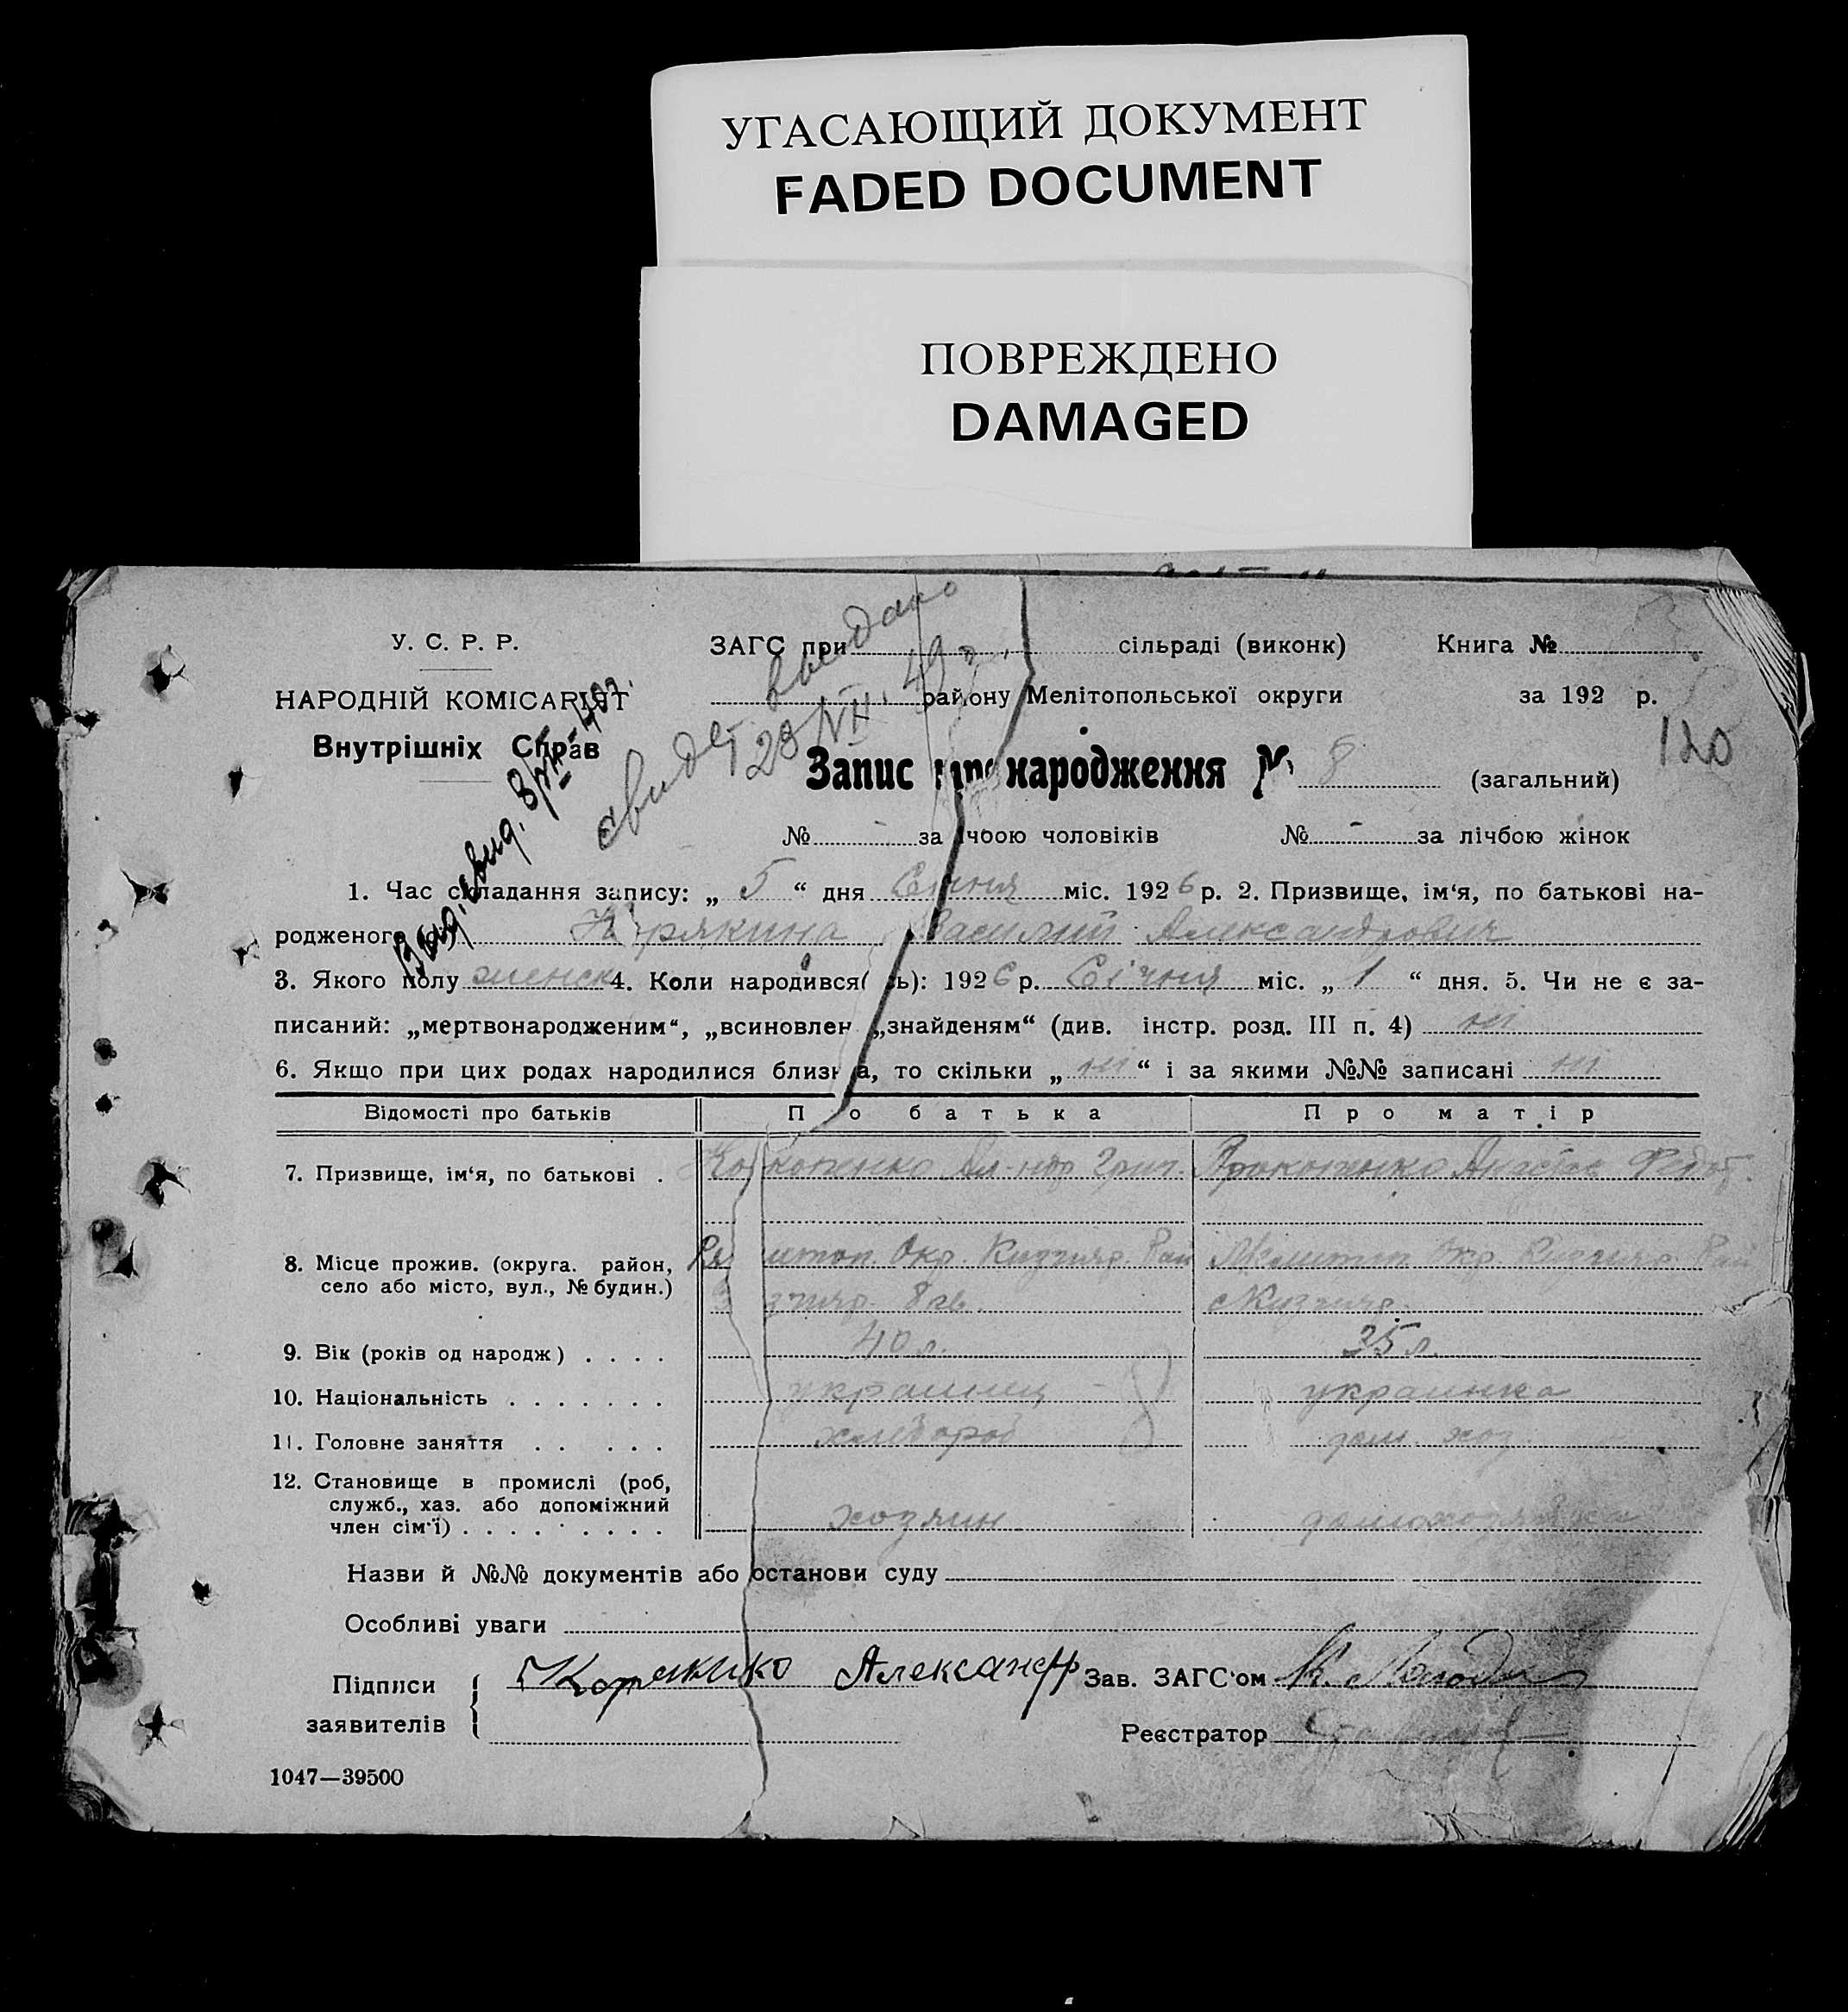 УГАСАЮЩИЙ ДОКУМЕНТ
FADED DOCUMENT
ПОВРЕЖДЕНО
DAMAGED
У. С. Р. Р.
НАРОДНІЙ КОМІСАРІЯТ
Внутрішніх Справ
ЗАГС при сільраді (виконк) Книга №
району Мелітопольської округи за 192 р.
120
Запис про народження № 8 (загальний)
№ - за лічбою чоловіків № - за лічбою жінок
свидет. выдано
23/VII. 49 г.
Выд. свид.
1. Час складання запису: „ 5 “ дня Січня міс. 1926 р. 2. Призвище, ім‘я, по батькові на-
родженого Василий Александрович
3. Якого полу женск 4. Коли народився( сь): 1926 р. Січня міс. „ 1 “ дня. 5. Чи не є за-
писаний: „мертвонародженим“, „всиновлен „знайденям“ (див. інстр. розд. III п. 4) ні
6. Якщо при цих родах народилися близня, то скільки „ ні “ і за якими №№ записані ні
Відомості про батьків По батька Про матір
7. Призвище, ім‘я, по батькові . Ал-ндр Григ. Прокопенко
8. Місце прожив. (округа. район, Окр. Кизгияр. Мелитоп. Окр. Кизгияр. Рай
село або місто, вул., № будин.) Кизгияр.
9. Вік (років од народж) . . . . 40 л. 35 л.
10. Національність . . . . . . . украинец украинка
11. Головне заняття . . . . . хлебороб дом. хоз.
12. Становище в промислі (роб,
служб., хаз. або допоміжний
член сім‘ї) . . . . . . . . . хозяин домохозяйка
Назви й №№ документів або останови суду
Особливі уваги
Підписи Александр Зав. ЗАГС‘ом
заявителів Реєстратор
1047—39500